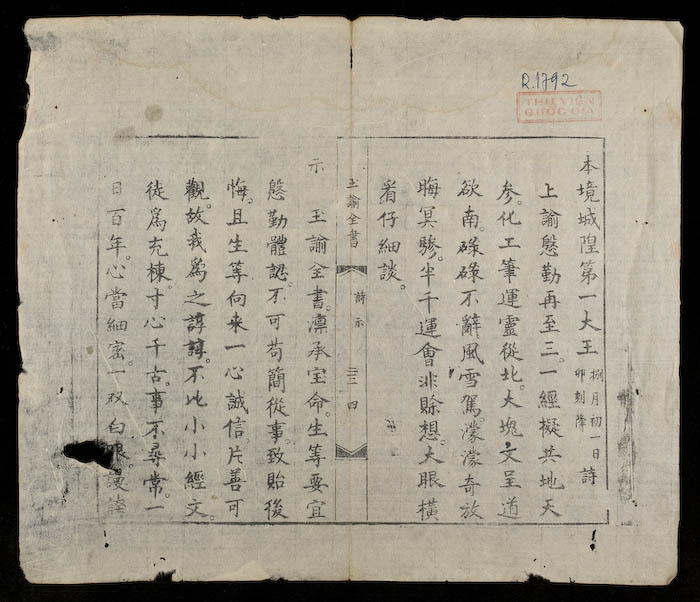 R.1792
THƯ VIỆN
QUỐC GIA
本境城隍第一大王 捌月初一日卯刻降 詩
上諭慇勤再至三。一經擬共地天
參。化工筆運靈從北。大塊文呈道
欲南。碌碌不辭風雪駕。濛濛奇放
晦冥驂。半千運會非賒想。大眼橫
看仔細談。
玉諭全書 詩示 三四
示 玉諭全書。凛承宝命。生等要宜
慇勤體認。不可苟簡從事。致貽後
悔。且生等向来一心誠信。片善可
觀。故我爲之諄諄。不比小小經文。
徒爲充棟。寸心千古。事不尋常。一
日百年。心當細密。一双白眼。